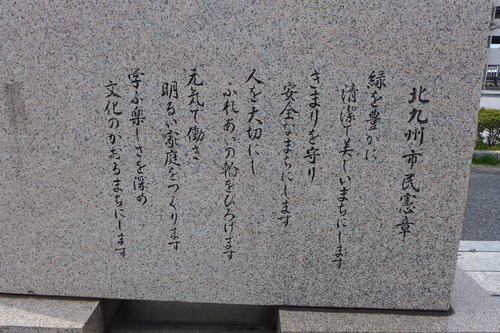 北九州市民憲章
緑を豊かに
清潔で美しいまちにします
きまりを守り
安全なまちにします
人を大切にし
ふれあいの輪をひろげます
元気で働き
明るい家庭をつくります
学ぶ楽しさを深め
文化のかおるまちにします